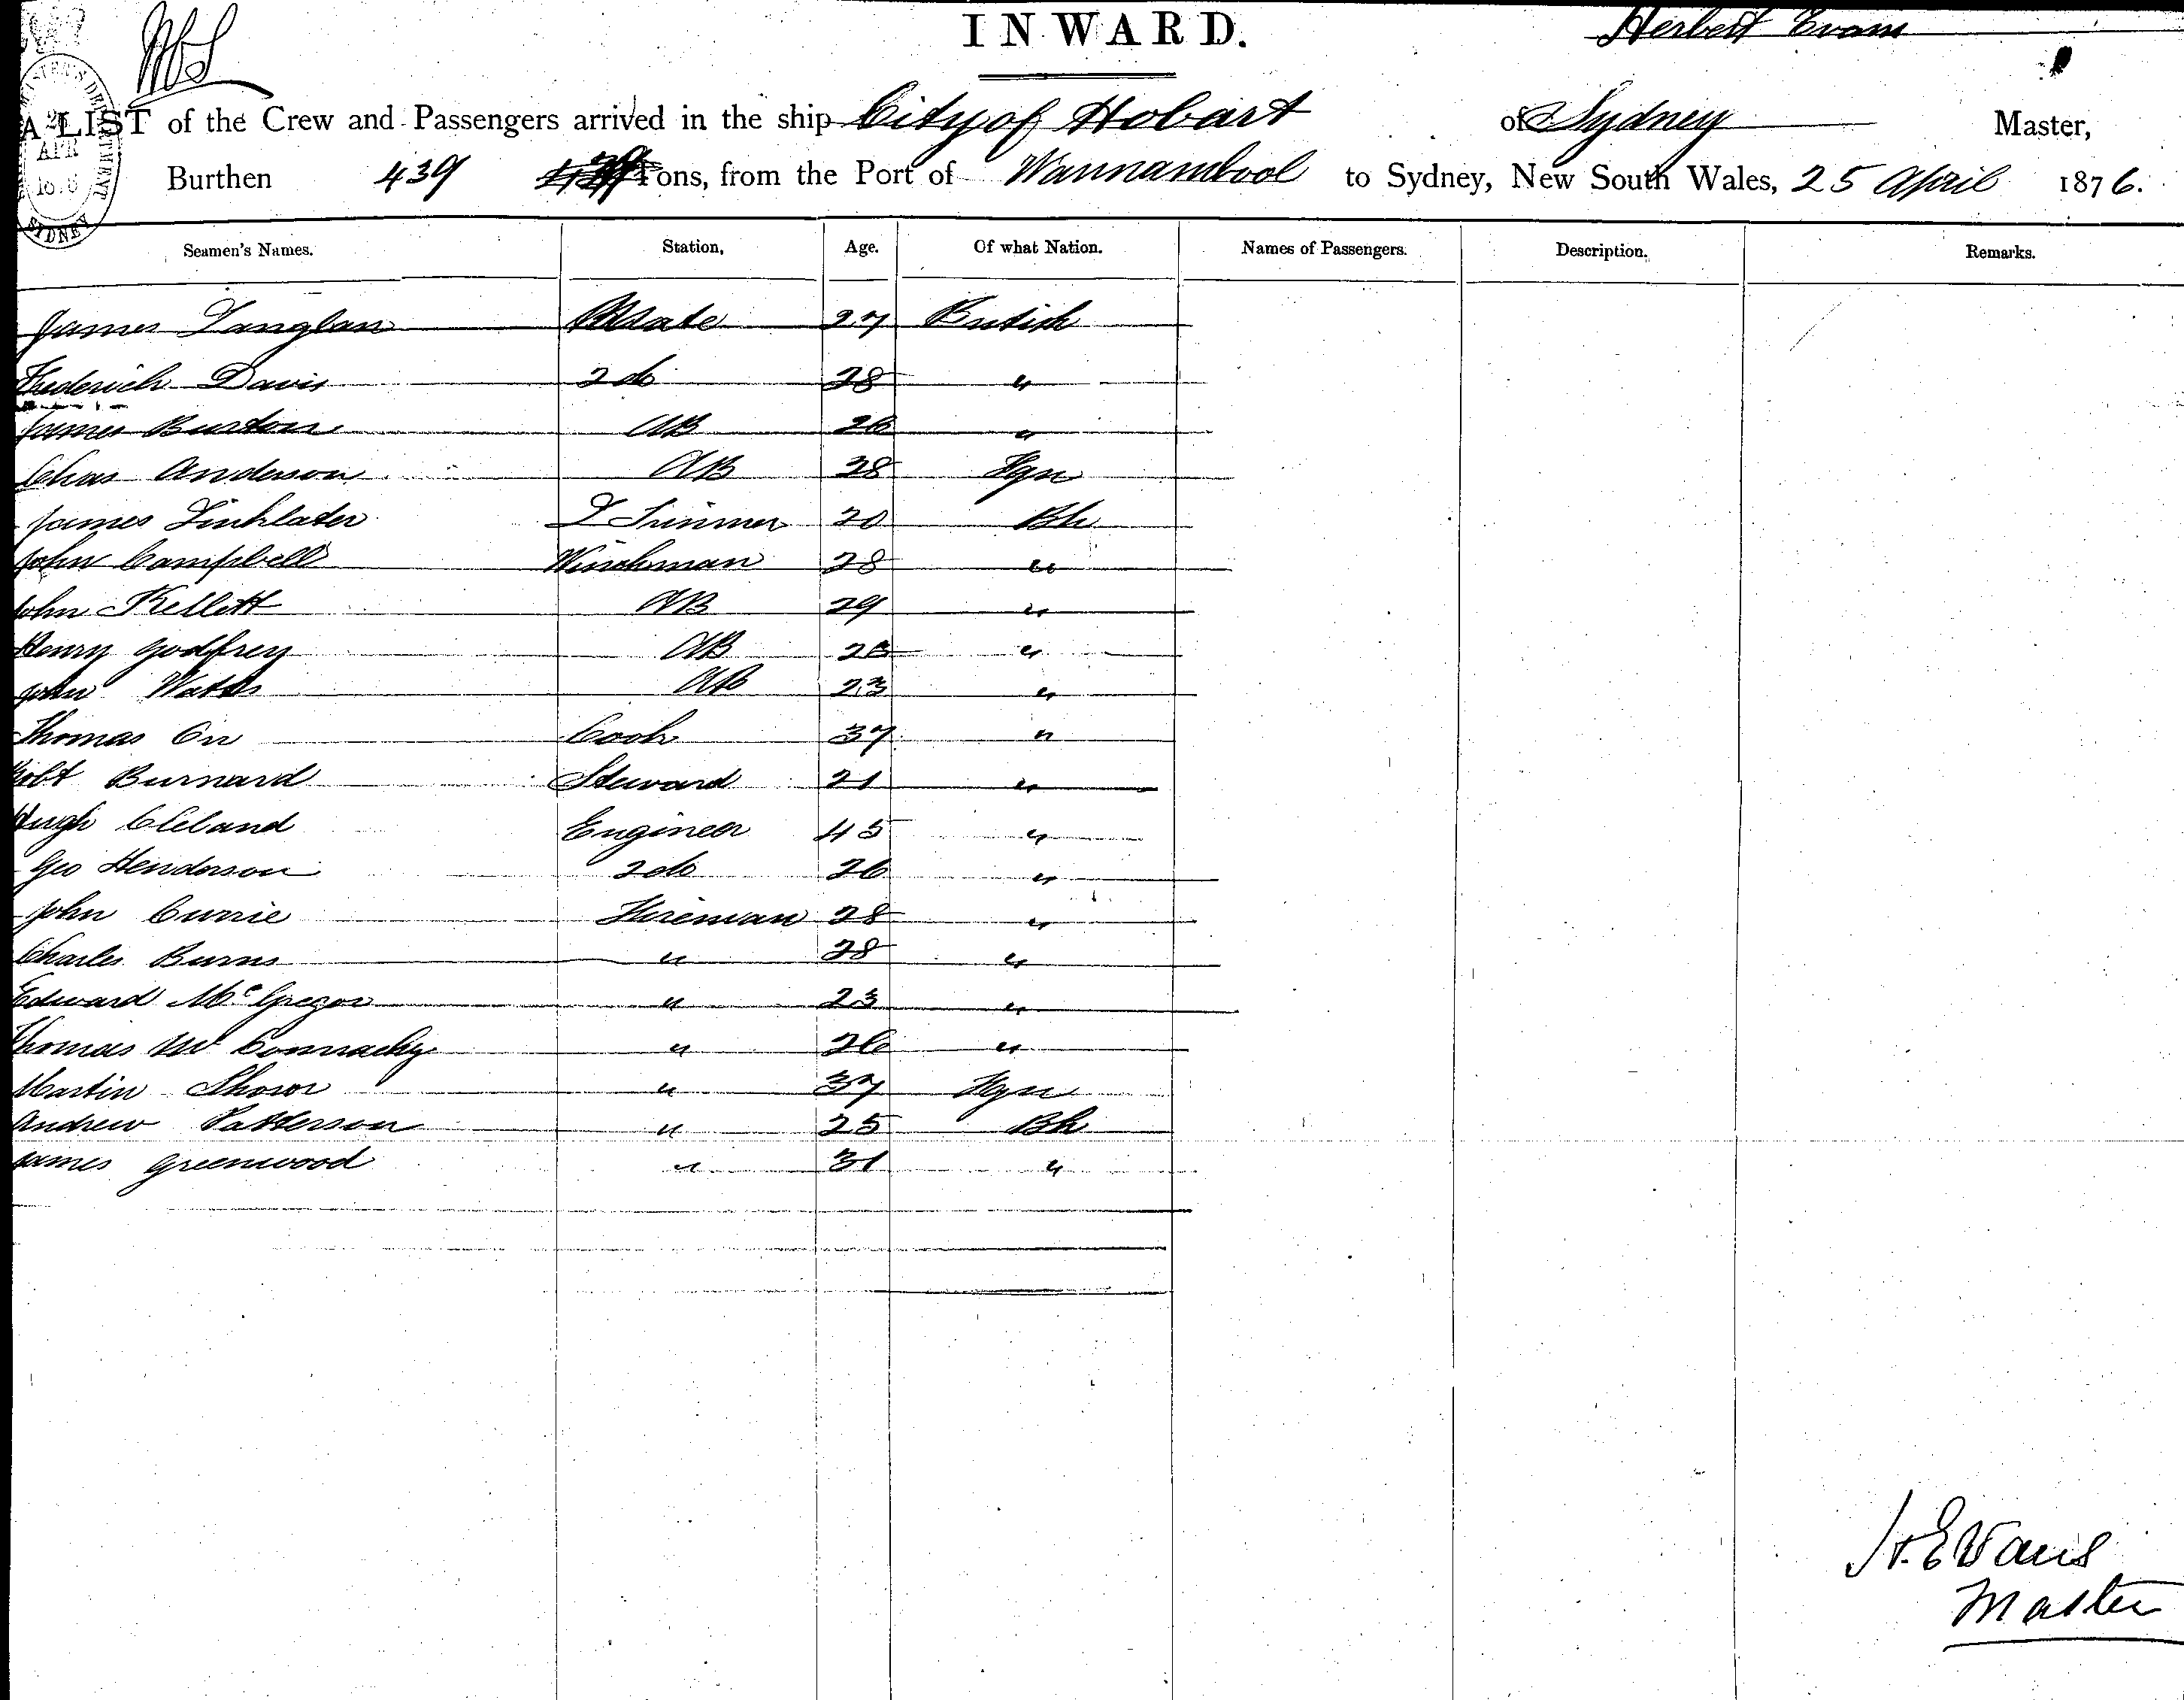 INWARD.
Herbert Evans
A LIST of the Crew and Passengers arrived in the ship City of Hobart of Sydney Master,
Burthen 439 Tons, from the Port of Warrnambool to Sydney, New South Wales, 25 April 1876.
Seamen's Names. Station, Age. Of what Nation. Names of Passengers. Description. Remarks.
James Langlan Mate 27 British
Frederich Davis 2 do 28 "
James Burton AB 26 "
Chas Anderson AB 28 Fgn
James Linklater L Trimmer 20 Bh
John Campbell Winchman 28 "
John Kellett AB 29 "
Henry Godfrey AB 23 "
John Watts AB 23 "
Thomas Orr Cook 37 "
Robt Burnard Steward 21 "
Hugh Cleland Engineer 45 "
Geo Henderson 2 do 26 "
John Currie Fireman 28 "
Charles Burns " 28 "
Edward McGregor " 23 "
Thomas McConnachy " 26 "
Martin Showr " 37 Fgn
Andrew Patterson " 25 Bh
James Greenwood " 31 "
H. Evans
Master